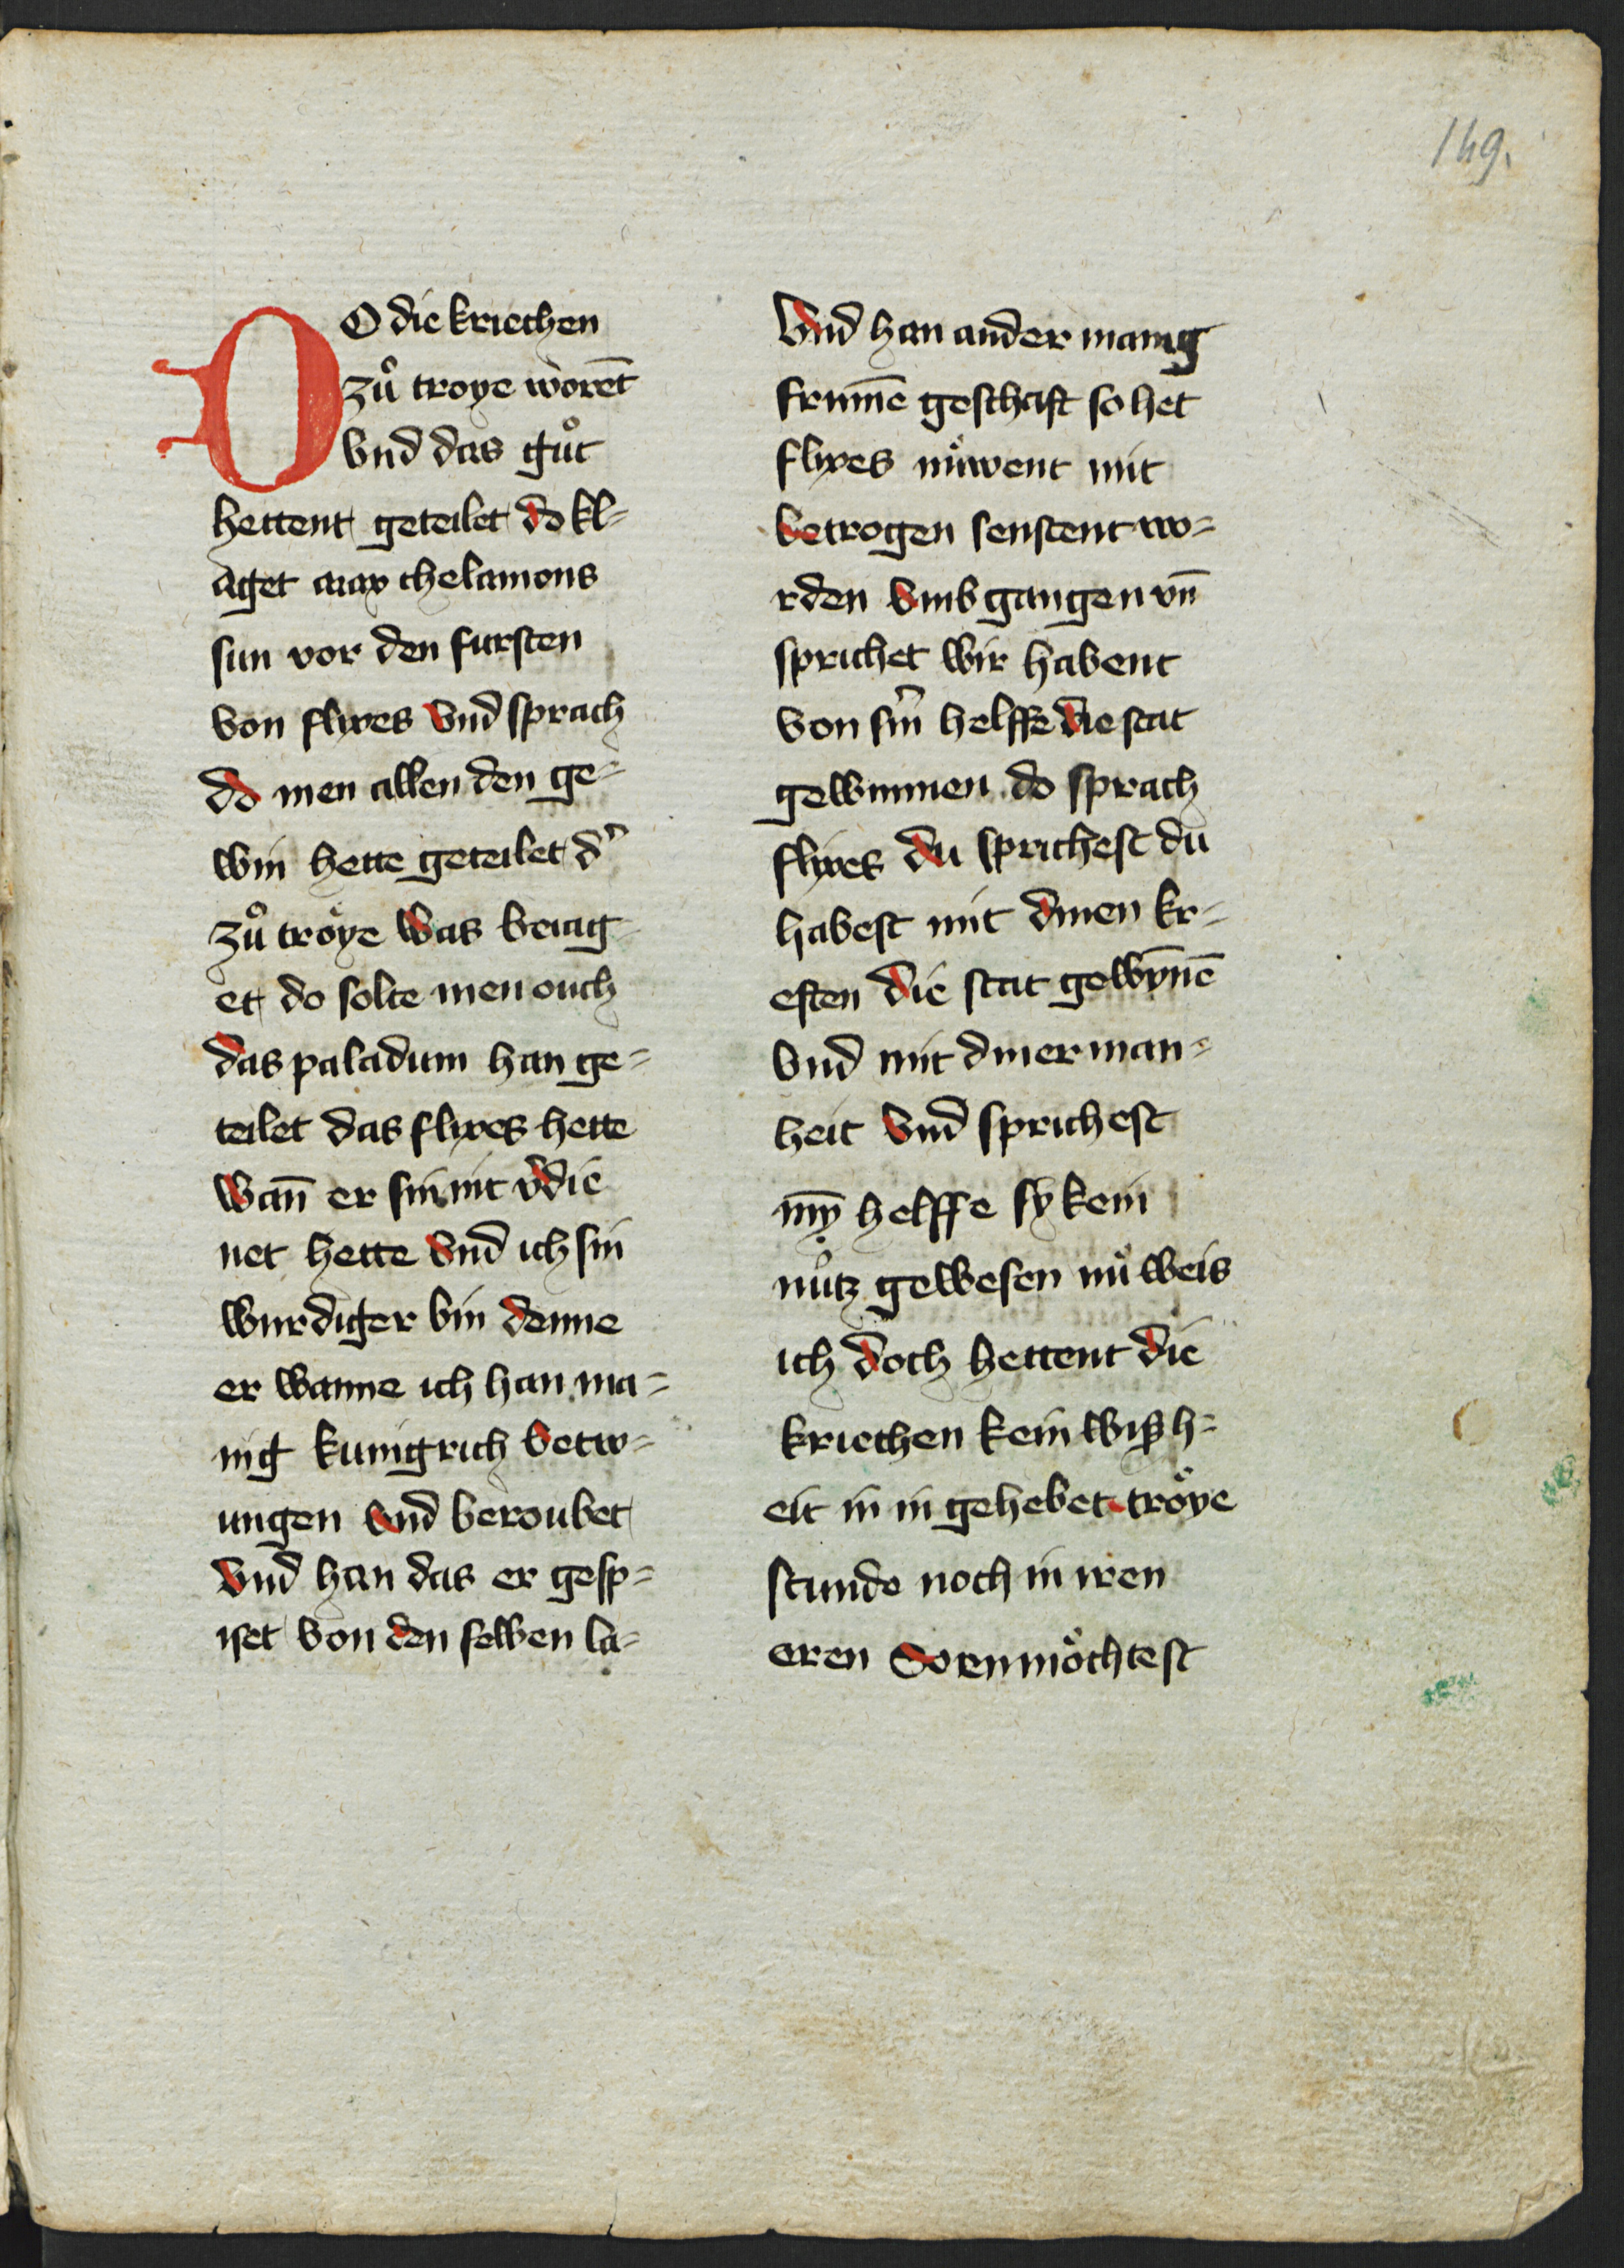 149.
DO die kriechen
zuͦ troye worēt
vnd das guͦt
hettent geteilet do kl=
aget aiax thelamons
sun vor den fursten
von flixes vnd sprach
do men allen den ge=
win hette geteilet d'
zuͦ troͤye was beiag
et do solte men ouch
das paladium han ge=
teilet das flixes hette
wan̄ er sin nit v̓die
net hette vnd ich sin
wurdiger bin denne
er wanne ich han ma=
nig kunigrich betw=
ungen vnd beroubet
vnd han das er gesp=
iset von den selben la=
vnd han ander manig
frum̄e geschaft so het
flixes nuͤwent mit
betrogen senftent wo=
rden vmb gangen vn̄
sprichet wir habent
von sin̓ helffe die stat
gewunnen do sprach
flixes du sprichest du
habest mit dinen kr=
eften die stat gewynē̄
vnd mit diner man=
heit vnd sprichest
my̅ helffe sy kein
nuͦtz gewesen nuͦ weis
ich doch hettent die
kriechen kein wißh=
eit in in gehebet troͤye
stunde noch in iren
eren Sorn moͤchtest